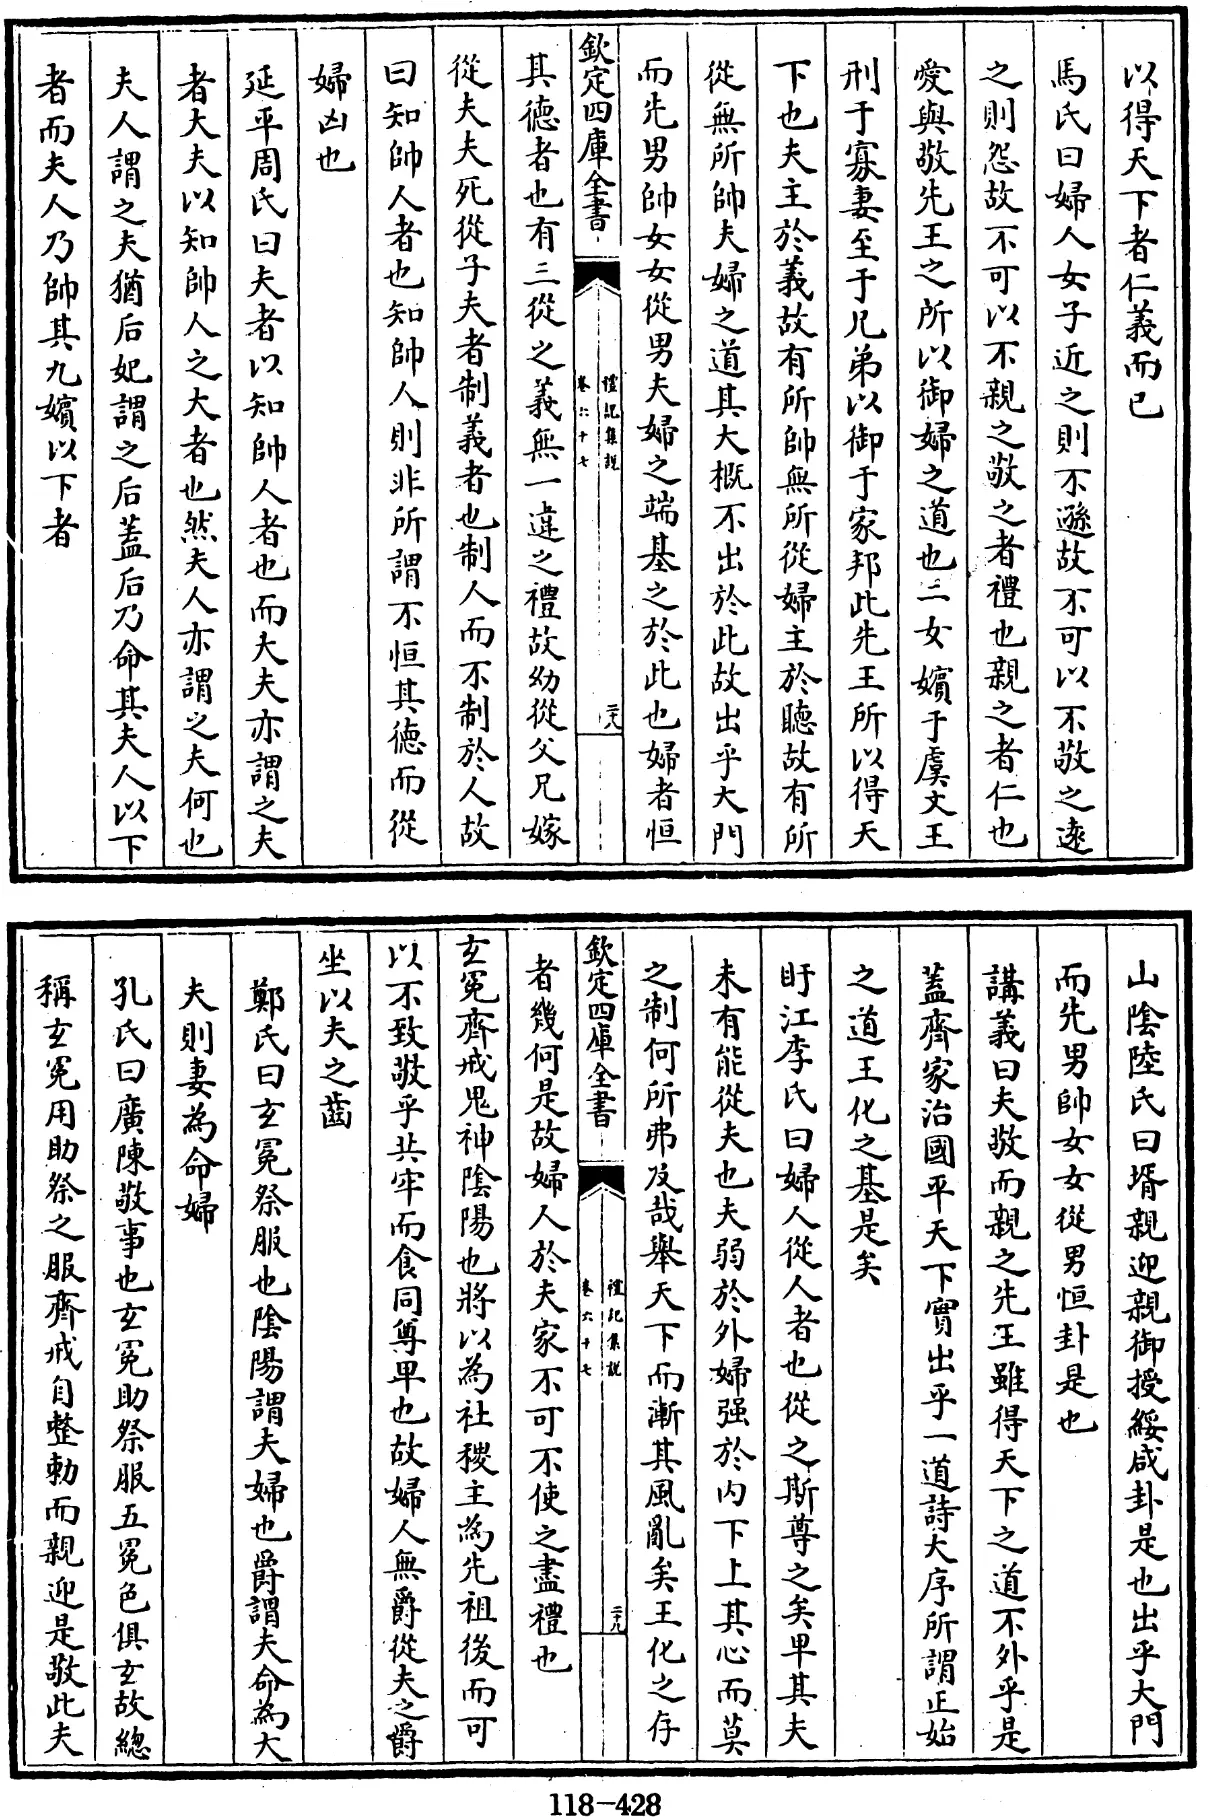 以得天下者仁義而已
馬氏曰婦人女子近之則不遜故不可以不敬之遠
之則怨故不可以不親之敬之者禮也親之者仁也
愛與敬先王之所以御婦之道也二女嬪于虞文王
刑于寡妻至于兄弟以御于家邦此先王所以得天
下也夫主於義故有所帥無所從婦主於聽故有所
從無所帥夫婦之道其大概不出於此故出乎大門
而先男帥女女從男夫婦之端基之於此也婦者恒
欽定四庫全書
禮記集說
卷六十七
二十八
其德者也有三從之義無一違之禮故幼從父兄嫁
從夫夫死從子夫者制義者也制人而不制於人故
曰知帥人者也知帥人則非所謂不恒其德而從
婦凶也
延平周氏曰夫者以知帥人者也而大夫亦謂之夫
者大夫以知帥人之大者也然夫人亦謂之夫何也
夫人謂之夫猶后妃謂之后蓋后乃命其夫人以下
者而夫人乃帥其九嬪以下者
山陰陸氏曰壻親迎親御授綏咸卦是也出乎大門
而先男帥女女從男恒卦是也
講義曰夫敬而親之先王雖得天下之道不外乎是
蓋齊家治國平天下實出乎一道詩大序所謂正始
之道王化之基是矣
盱江李氏曰婦人從人者也從之斯尊之矣卑其夫
未有能從夫也夫弱於外婦强於内下上其心而莫
之制何所弗及哉舉天下而漸其風亂矣王化之存
欽定四庫全書
禮記集說
卷六十七
二十九
者幾何是故婦人於夫家不可不使之盡禮也
玄冕齊戒鬼神陰陽也將以為社稷主為先祖後而可
以不致敬乎共牢而食同尊卑也故婦人無爵從夫之爵
坐以夫之齒
鄭氏曰玄冕祭服也陰陽謂夫婦也爵謂夫命為大
夫則妻為命婦
孔氏曰廣陳敬事也玄冕助祭服五冕色俱玄故總
稱玄冕用助祭之服齊戒自整勅而親迎是敬此夫
118-428